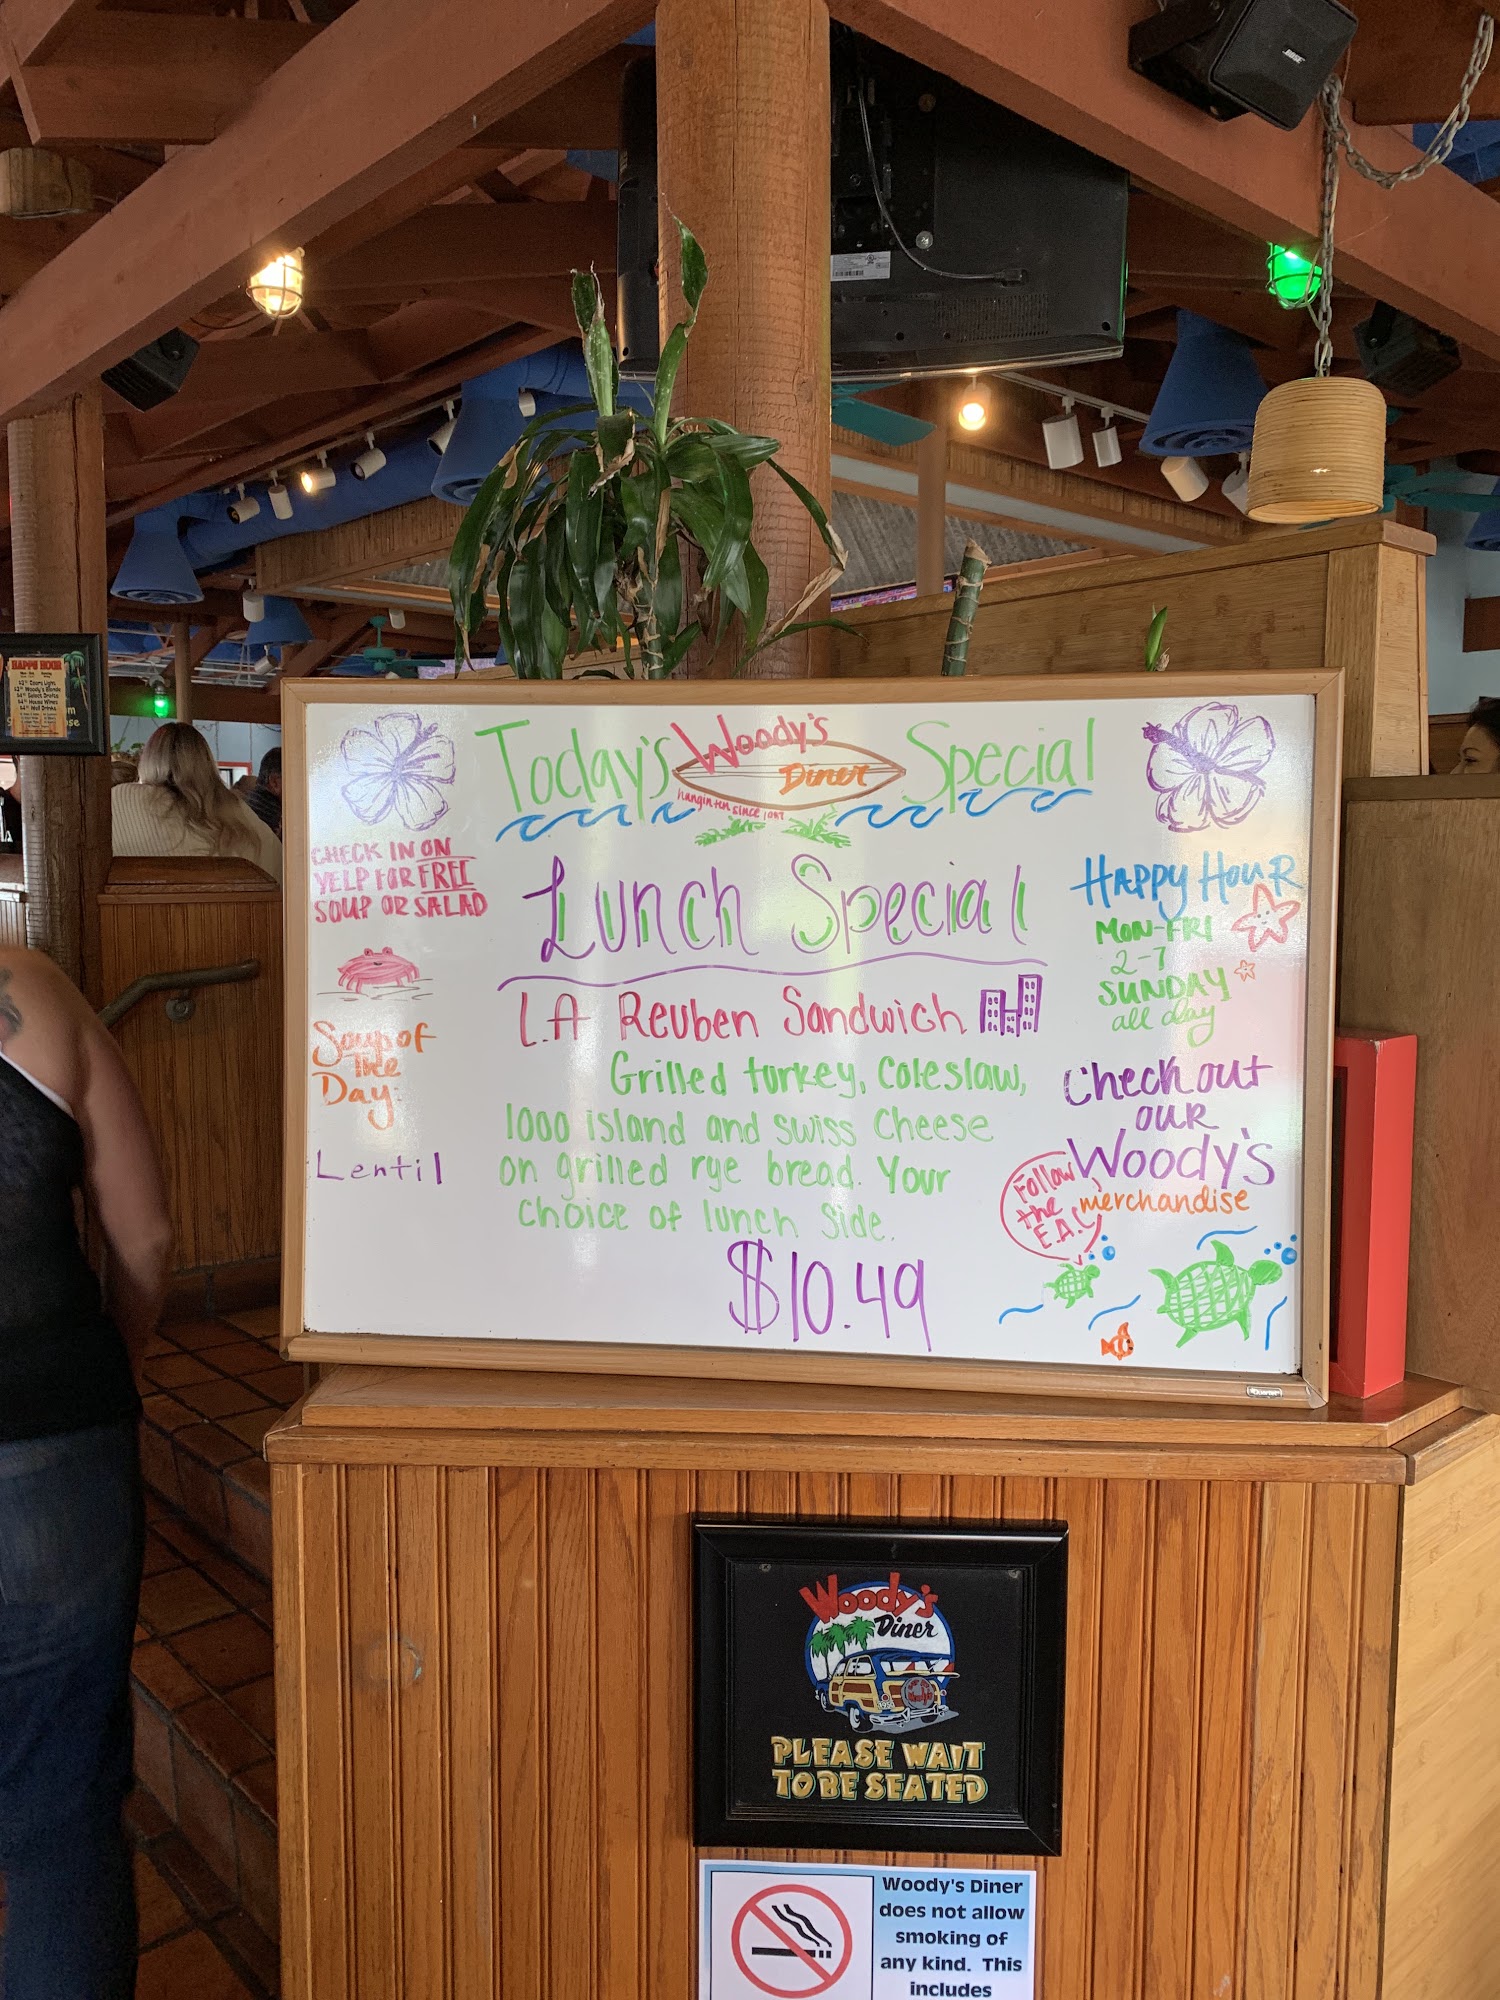 BOSE
HAPPY HOUR
Today's Woody's Diner Special
hangin ten since 1987
CHECK IN ON
YELP FOR FREE
SOUP OR SALAD
Soup of
The
Day:
Lentil
Lunch Special
L.A Reuben Sandwich
Grilled turkey, Coleslaw,
1000 island and swiss Cheese
on grilled rye bread. Your
choice of lunch side.
$10.49
HAPPY HOUR
MON-FRI
2-7
SUNDAY
all day
Check out
our
Woody's
merchandise
Follow
the
E.A.C
Woody's
Diner
PLEASE WAIT
TO BE SEATED
Woody's Diner
does not allow
smoking of
any kind. This
includes